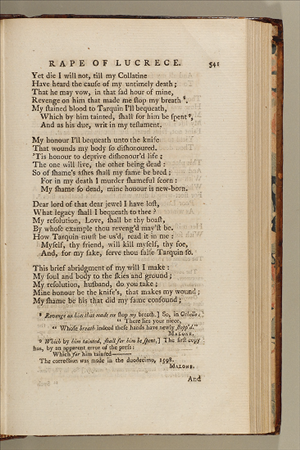 RAPE OF LUCRECE. 541
Yet die I will not, till my Collatine
Have heard the cause of my untimely death;
That he may vow, in that sad hour of mine,
Revenge on him that made me stop my breath⁸.
My stained blood to Tarquin I'll bequeath,
Which by him tainted, shall for him be spent⁹,
And as his due, writ in my testament.
My honour I'll bequeath unto the knife
That wounds my body so dishonoured.
'Tis honour to deprive dishonour'd life;
The one will live, the other being dead:
So of shame's ashes shall my fame be bred;
For in my death I murder shameful scorn:
My shame so dead, mine honour is new-born.
Dear lord of that dear jewel I have lost,
What legacy shall I bequeath to thee?
My resolution, Love, shall be thy boast,
By whose example thou reveng'd may'st be.
How Tarquin must be us'd, read it in me:
Myself, thy friend, will kill myself, thy foe,
And, for my sake, serve thou false Tarquin so.
This brief abridgment of my will I make:
My soul and body to the skies and ground;
My resolution, husband, do you take;
Mine honour be the knife's, that makes my wound;
My shame be his that did my fame confound;
⁸ Revenge on him that made me stop my breath.] So, in Othello:
" There lies your niece,
" Whose breath indeed these hands have newly stopp'd."
MALONE.
⁹ Which by him tainted, shall for him be spent,] The first copy
has, by an apparent error of the press:
Which for him tainted———
The correction was made in the duodecimo, 1598.
MALONE.
And